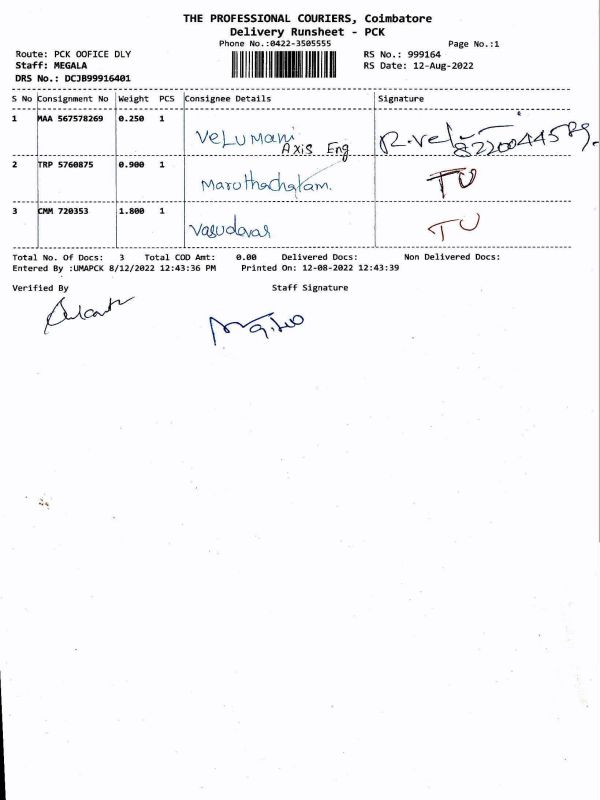 THE PROFESSIONAL COURIERS, Coimbatore
Delivery Runsheet - PCK
Phone No.:0422-3505555
Page No.:1
Route: PCK OOFICE DLY
RS No.: 999164
Staff: MEGALA
RS Date: 12-Aug-2022
DRS No.: DCJB99916401
S No Consignment No Weight PCS Consignee Details Signature
1 MAA 567578269 0.250 1 VELUMANI R.Vel
Axis Eng
2 TRP 5760875 0.900 1 Maruthachalam. TU
3 CMM 720353 1.800 1 Vasudavas TU
Total No. Of Docs: 3 Total COD Amt: 0.00 Delivered Docs: Non Delivered Docs:
Entered By :UMAPCK 8/12/2022 12:43:36 PM Printed On: 12-08-2022 12:43:39
Verified By Staff Signature